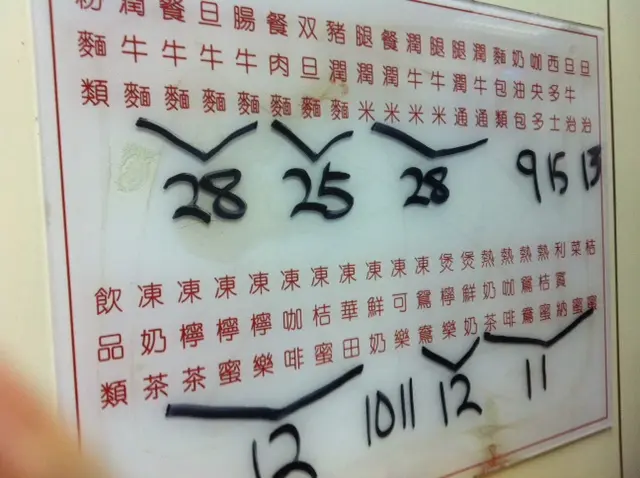 粉麵類
潤牛麵
餐牛麵
旦牛麵
腸牛麵
餐肉麵
双旦麵
豬潤麵
腿潤米
餐潤米
潤牛米
腿牛米
腿潤通
潤牛通
麵包類
奶油包
咖央多
西多士
旦牛治
旦治
28
25
28
9
15
13
飲品類
凍奶茶
凍檸茶
凍檸蜜
凍檸樂
凍咖啡
凍桔蜜
凍華田
凍鮮奶
凍可樂
凍鴛鴦
煲檸樂
煲鮮奶
熱奶茶
熱咖啡
熱鴛鴦
熱桔蜜
利賓納
菜蜜
桔蜜
12
10
11
12
11